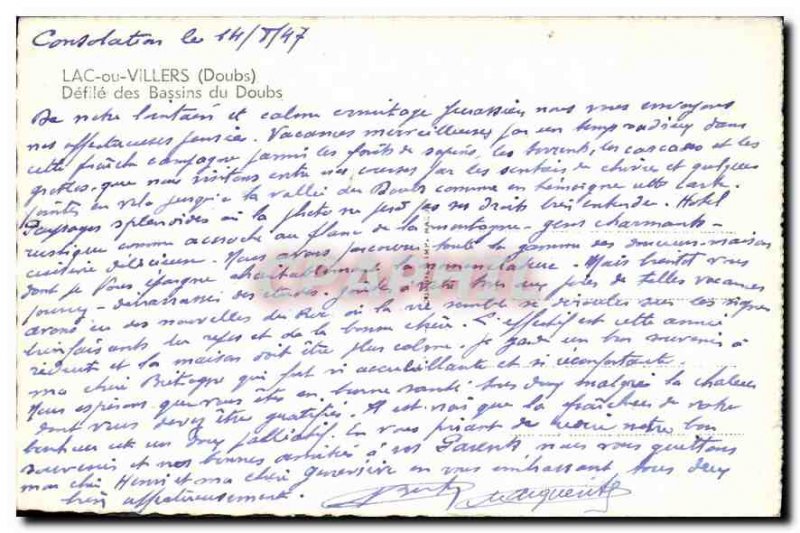 Consolation le 14/8/47
LAC-ou-VILLERS (Doubs)
Défilé des Bassins du Doubs
De notre lointain et calme ermitage jurassien, nous vous envoyons
nos affectueuses pensées. Vacances merveilleuses par un temps radieux dans
cette fraîche campagne parmi les forêts de sapins, les torrents, les cascades et les
grottes, que nous visitons entre nos courses par les sentiers de chèvre et quelques
pointes en vélo jusqu'à la vallée du Doubs comme en témoigne cette carte.
Paysages splendides où la photo ne perd pas ses droits bien entendu. Hotel
rustique comme accroché au flanc de la montagne - gens charmants -
cuisine délicieuse. Nous avons parcouru toute la gamme des douceurs maison
dont je vous épargne charitablement la nomenclature. Mais bientôt vous
de telles vacances
avons eu des nouvelles du où la vie semble se dérouler sous les signes
bienfaisants du repos et de la bonne chère. L'effectif est cette année
réduit et la maison doit être plus calme. Je garde un bon souvenir à
ma chère Bretagne qui fut si accueillante et si réconfortante.
Nous espérons que vous êtes en bonne santé tous deux malgré la chaleur
dont vous devez être gratifiés. Il est vrai que la fraîcheur de votre
est un doux palliatif. En vous priant de notre bon
souvenir et nos bonnes amitiés à vos Parents, nous vous quittons
mon cher Henri et ma chère Geneviève en vous embrassant tous deux
bien affectueusement.
Marguerite